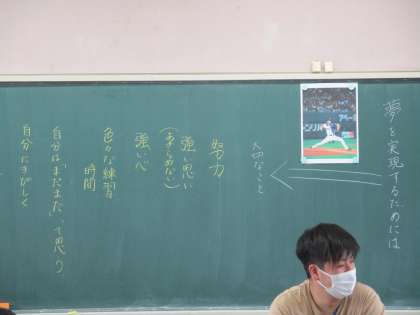 夢を実現するためには
大切なこと
努力
強い思い
(あきらめない)
強い心
色々な練習
時間
自分は「まだまだ」って思う
自分にきびしく